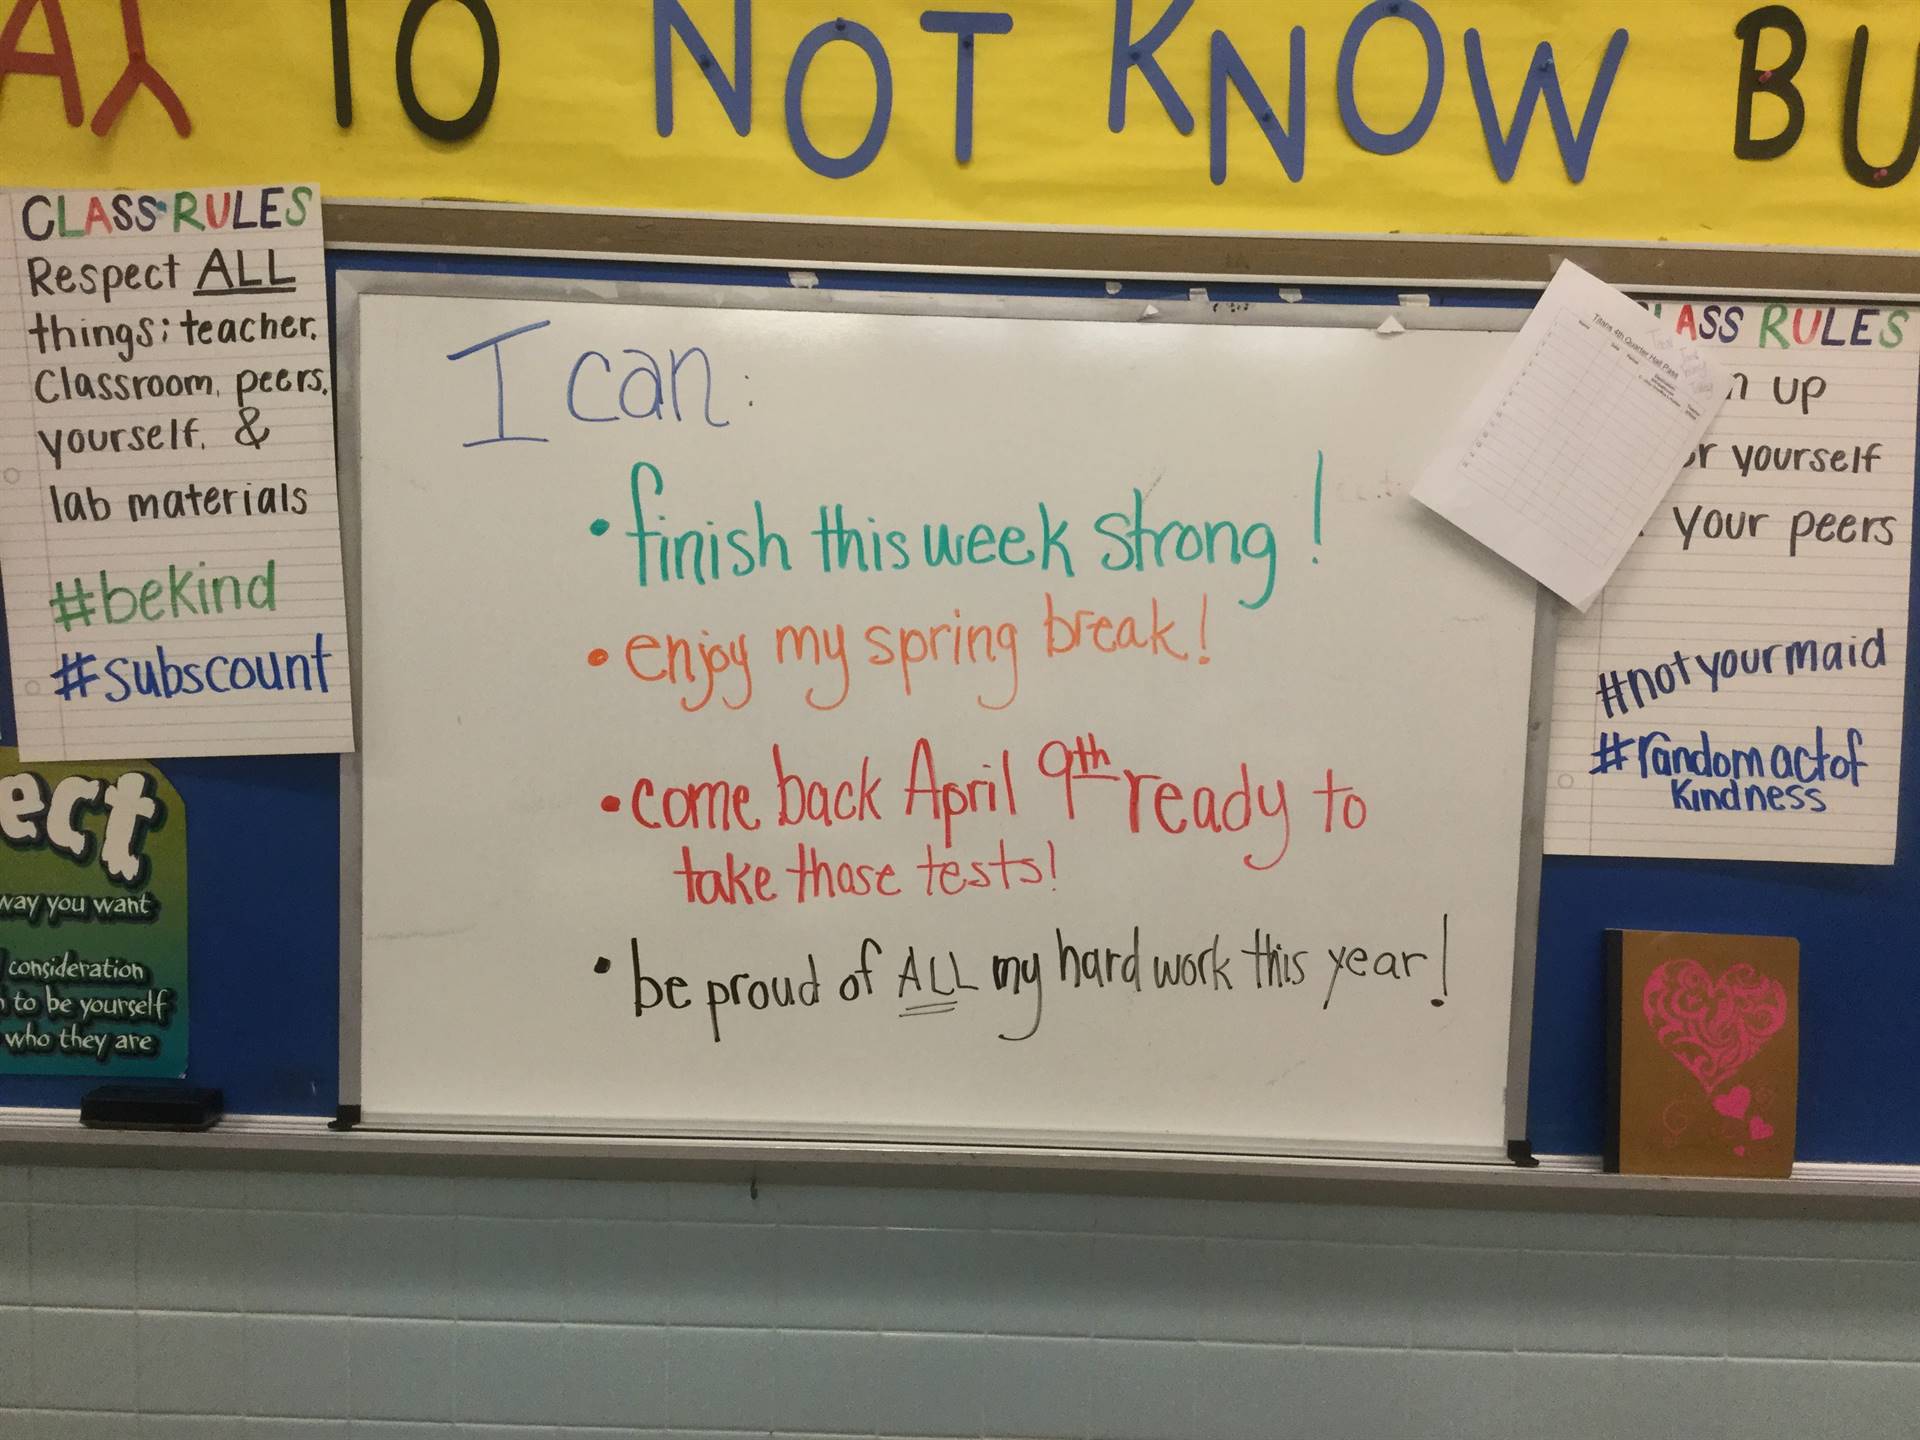 TO NOT KNOW BU
CLASS RULES
Respect ALL
things; teacher,
Classroom, peers,
yourself, &
lab materials
#bekind
#subscount
ect
way you want
consideration
to be yourself
who they are
I can:
• finish this week strong!
• enjoy my spring break!
• come back April 9th ready to
take those tests!
• be proud of ALL my hard work this year!
Titans 4th Quarter Hall Pass
ASS RULES
up
yourself
your peers
#notyourmaid
#randomactof
kindness